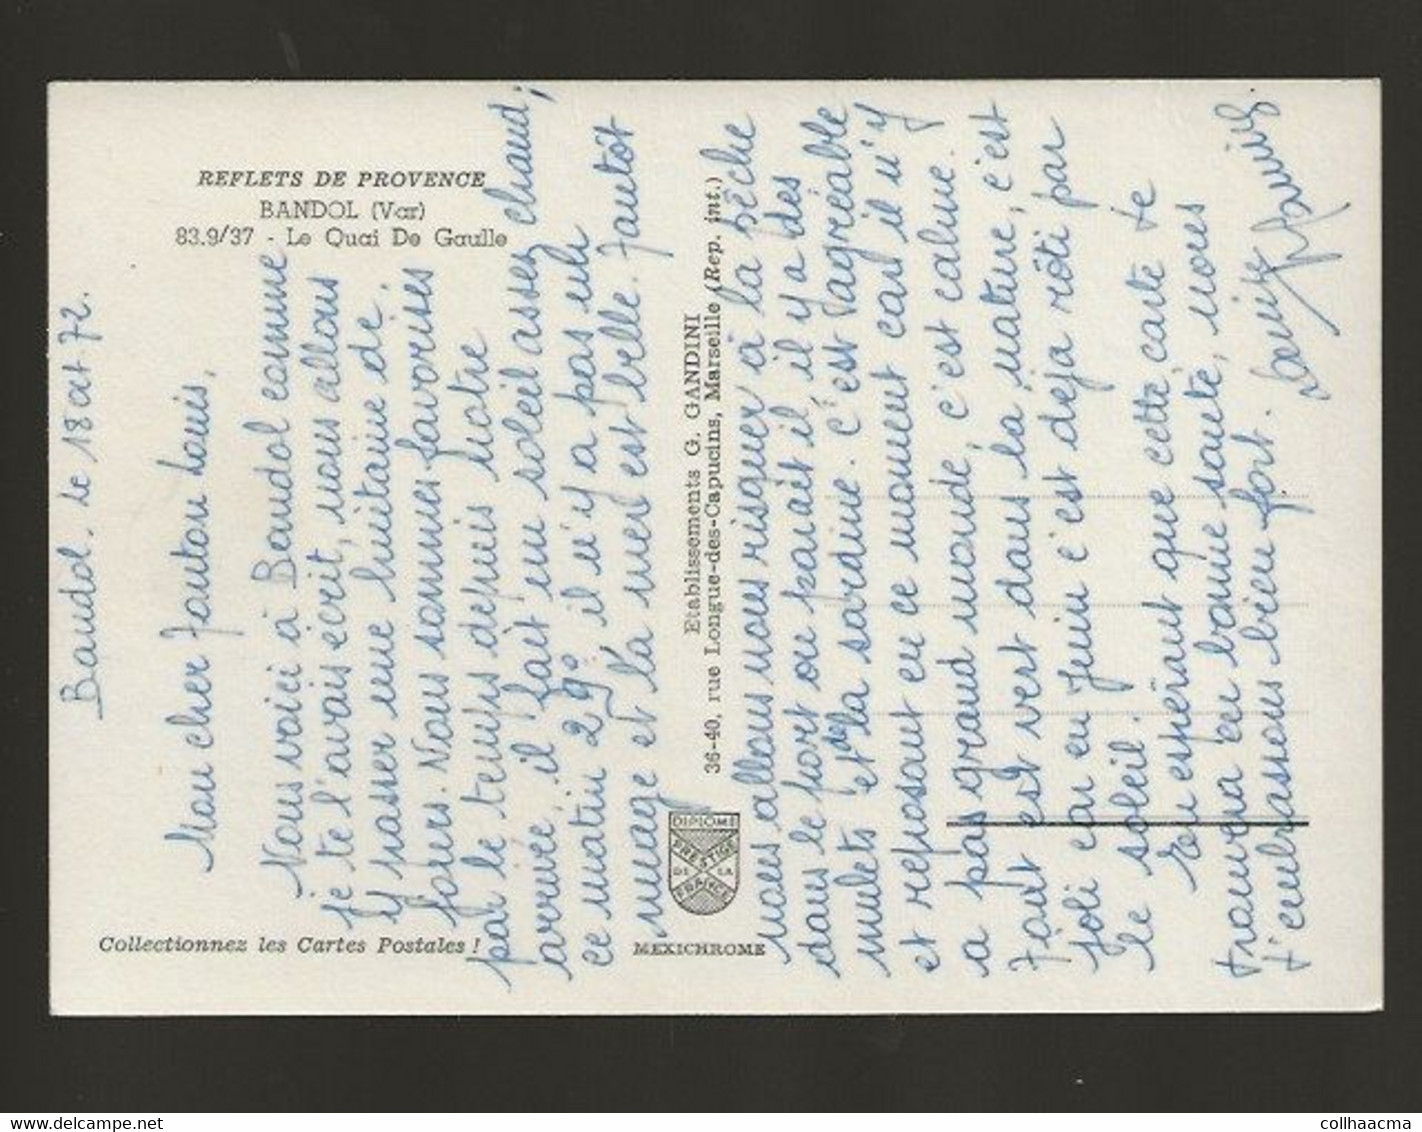 REFLETS DE PROVENCE
BANDOL (Var)
83.9/37 - Le Quai De Gaulle
Collectionnez les Cartes Postales !
Etablissements G. GANDINI
36-40, rue Longue-des-Capucins, Marseille (Rep. int.)
DIPLOME
PRESTIGE
DE LA
FRANCE
MEXICHROME
Bandol. le 18 oct 72.
Mon cher Tonton Louis,
Nous voici à Bandol comme
je te l'avais écrit, nous allons
y passer une huitaine de
jours. Nous sommes favorisés
par le temps depuis notre
arrivée, il fait un soleil assez chaud,
ce matin 29° il n'y a pas un
nuage et la mer est belle. Tantôt
nous allons nous risquer à la pêche
dans le port ou parait il il y a des
mulets et de la sardine. C'est agréable
et reposant en ce moment car il n'y
a pas grand monde, c'est calme.
Tout est vert dans la nature, c'est
joli car en Juin c'est déja rôti par
le soleil.
En espérant que cette carte te
trouvera en bonne santé, nous
t'embrassons bien fort.
Louise
collhaacma